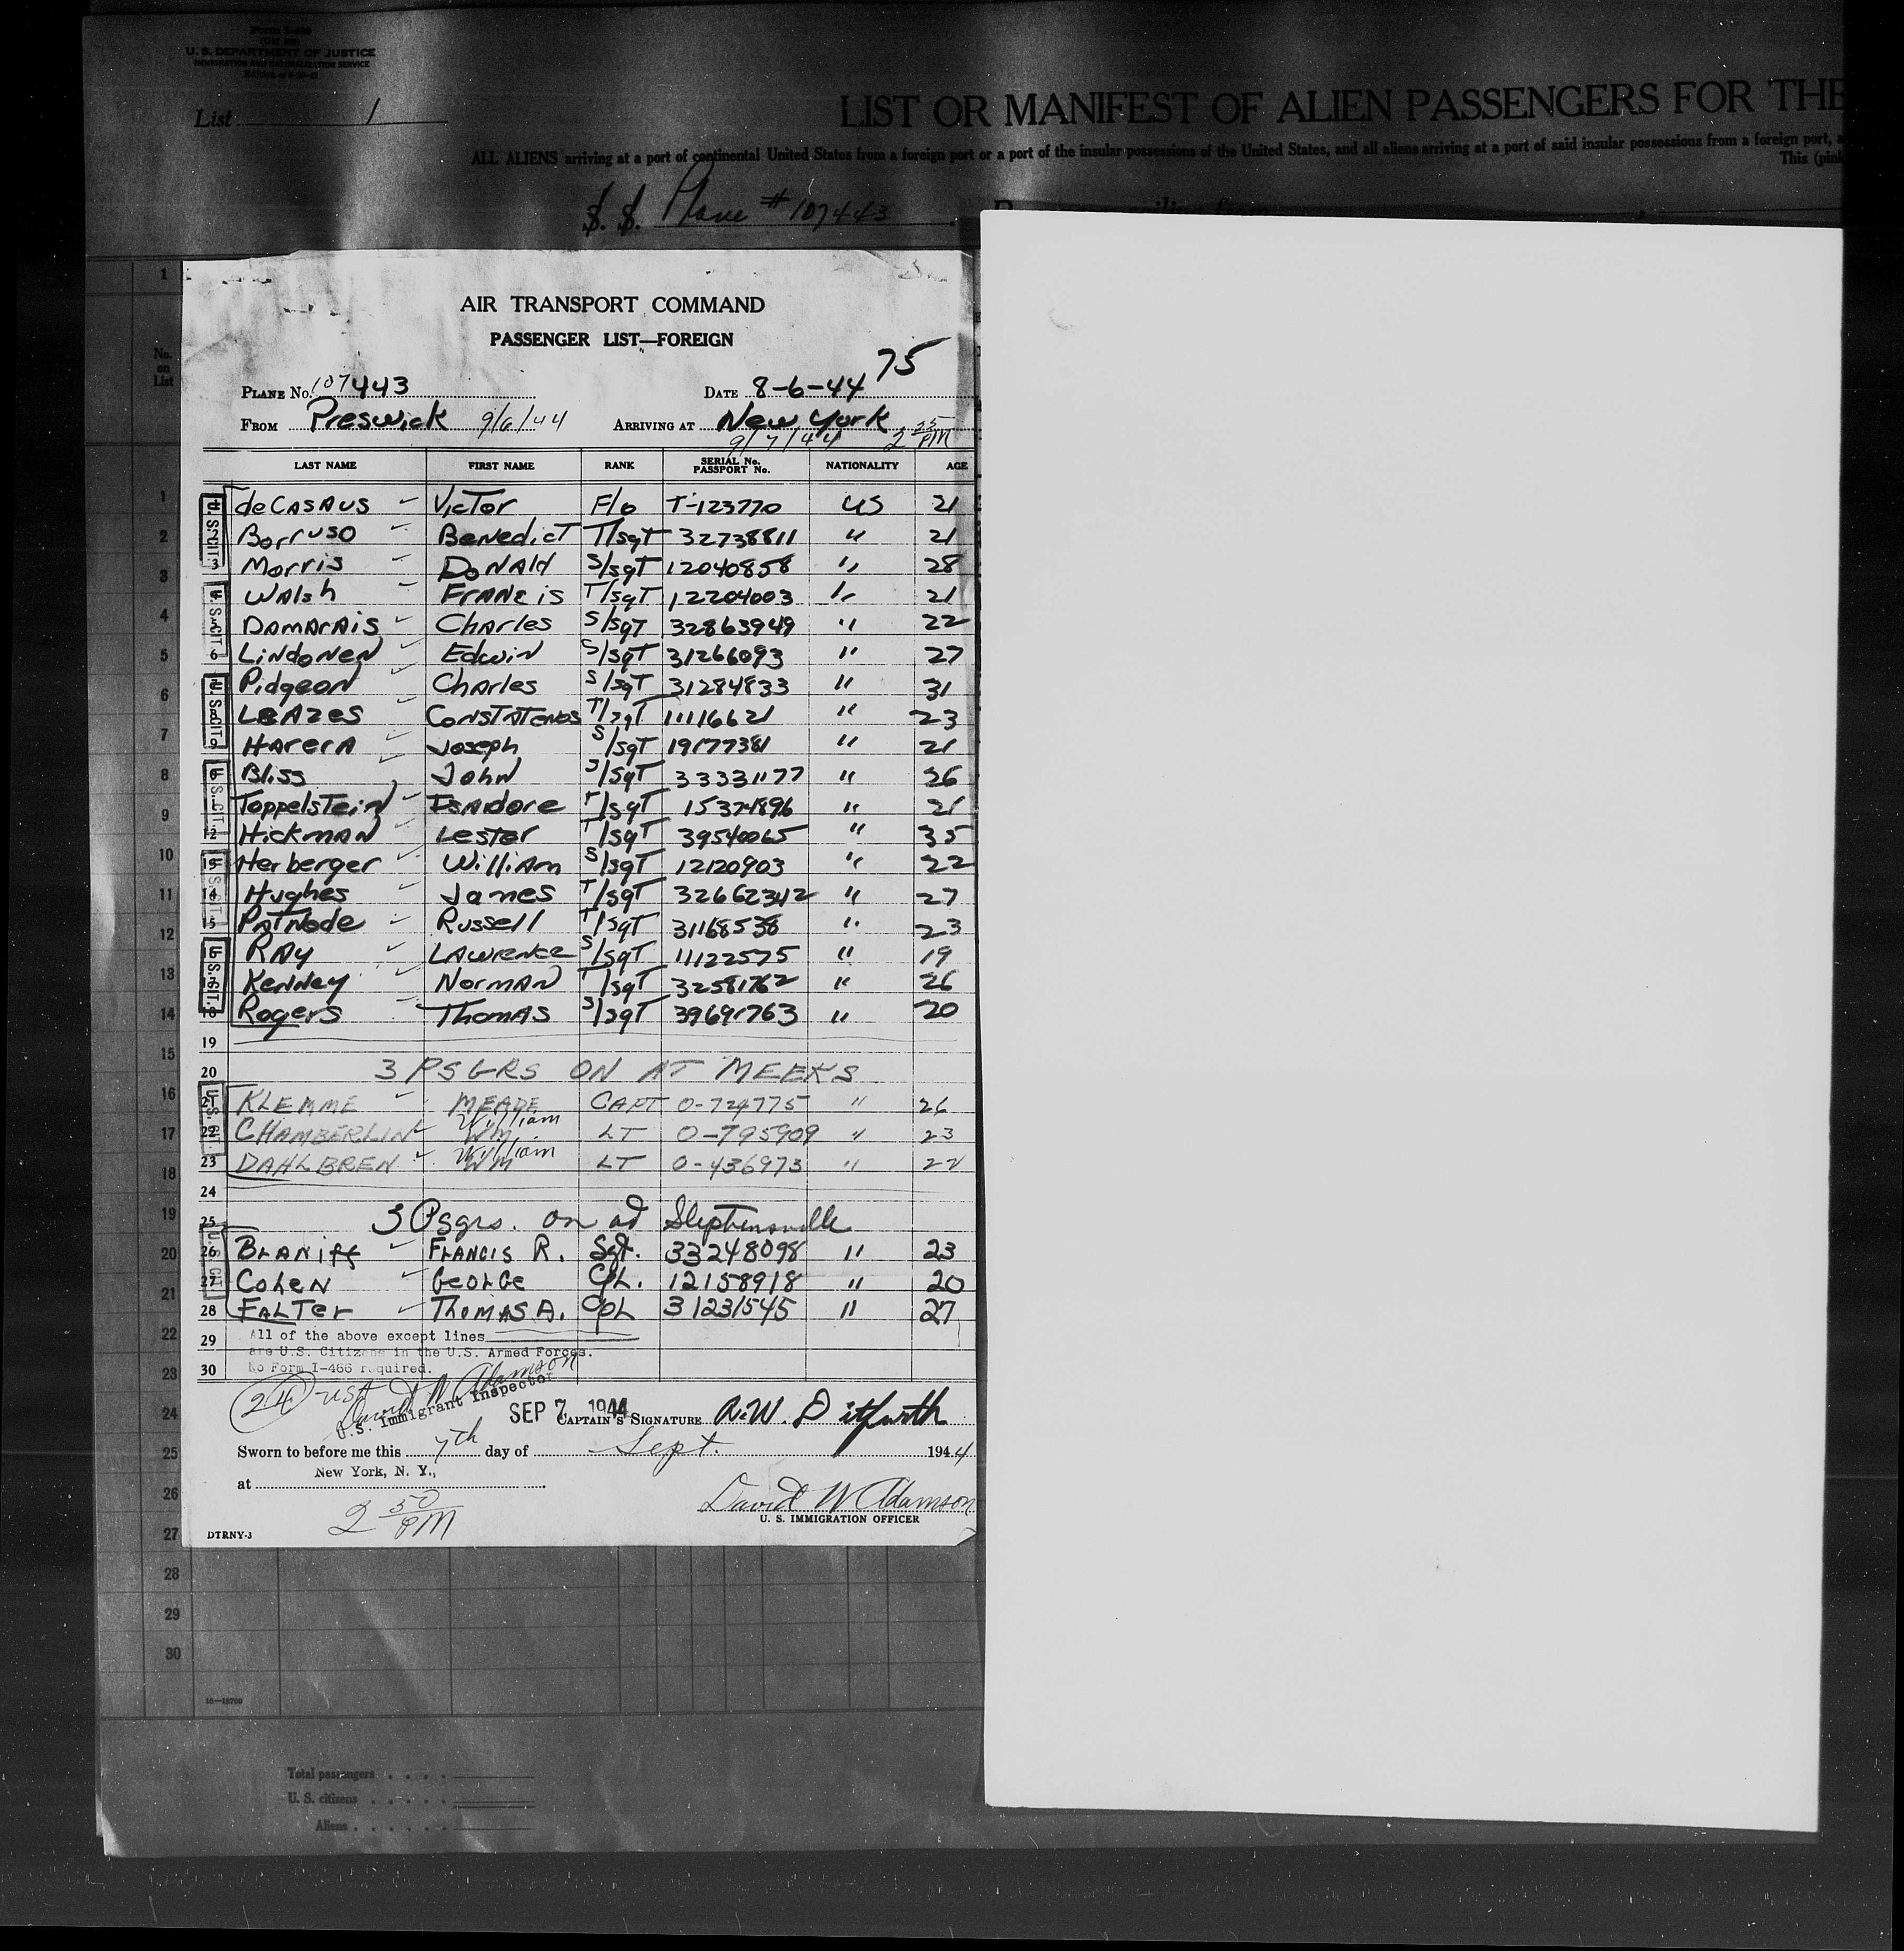 U. S. DEPARTMENT OF JUSTICE
IMMIGRATION AND NATURALIZATION SERVICE
List 1
LIST OR MANIFEST OF ALIEN PASSENGERS FOR THE
ALL ALIENS arriving at a port of continental United States from a foreign port or a port of the insular possessions of the United States, and all aliens arriving at a port of said insular possessions from a foreign port, a
This (pink
S. S. Plane # 107443
AIR TRANSPORT COMMAND
PASSENGER LIST—FOREIGN
75
PLANE No. 107443 DATE 8-6-44
FROM Preswick 9/6/44 ARRIVING AT New York
9/7/44 2 35 PM
LAST NAME FIRST NAME RANK SERIAL No. PASSPORT No. NATIONALITY AGE
deCASAUS Victor F/o T-123770 US 21
Borruso Benedict T/sgt 32738811 " 21
3 Morris Donald S/sgt 12040858 " 28
Walsh Francis T/sgt 12204003 " 21
Damarais Charles S/sgt 32863949 " 22
6 Lindonen Edwin S/sgt 31266093 " 27
Pidgeon Charles S/sgt 31284833 " 31
Leazes Constatenos T/sgt 11116621 " 23
9 Harera Joseph S/sgt 19177381 " 21
Bliss John S/sgt 33331177 " 26
Toppelstein Isadore T/sgt 15374896 " 21
12 Hickman Lester T/sgt 39540065 " 35
13 Herberger William S/sgt 12120903 " 22
14 Hughes James T/sgt 32662342 " 27
15 Patnode Russell T/sgt 31168538 " 23
Ray Lawrence S/sgt 11122575 " 19
Kenney Norman T/sgt 32581762 " 26
18 Rogers Thomas S/sgt 39691763 " 20
19
20 3 PSGRS ON AT MEEKS
21 KLEMME MEADE CAPT O-724775 " 26
22 CHAMBERLIN WM William LT O-795909 " 23
23 DAHLBREN WM William LT O-436973 " 22
24
25 3 Psgrs. on at Stephensville
26 Blaniff Francis R. Sgt. 33248098 " 23
27 Cohen George Cpl. 12158918 " 20
28 Falter Thomas A. Cpl 31231545 " 27
29 All of the above except lines
are U.S. Citizens in the U.S. Armed Forces.
30 No Form I-466 required.
24 USA David W Adamson
U.S. Immigrant Inspector
SEP 7 1944 CAPTAIN'S SIGNATURE R.W. Ditfurth
Sworn to before me this 7th day of Sept. 1944
at New York, N. Y.,
2 50 PM
David W Adamson
U. S. IMMIGRATION OFFICER
DTRNY-3
No. on List
1
2
3
4
5
6
7
8
9
10
11
12
13
14
15
16
17
18
19
20
21
22
23
24
25
26
27
28
29
30
Total passengers
U. S. citizens
Aliens